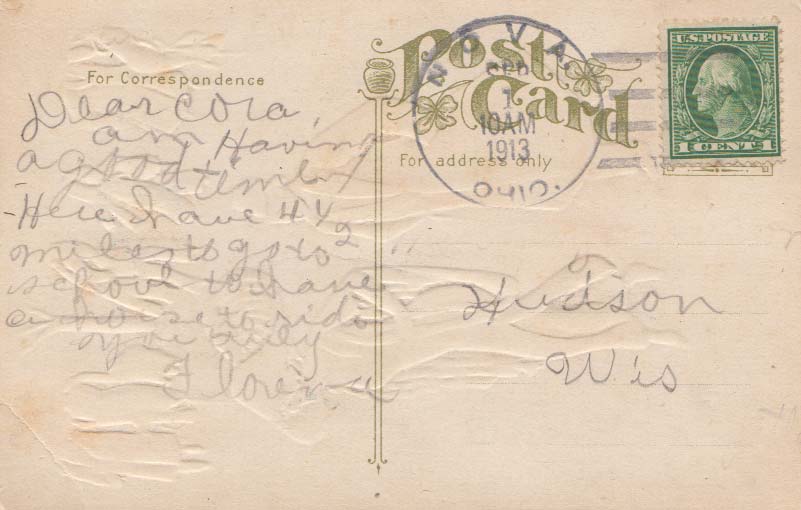 Post Card
For Correspondence
For address only
NOVA
SEP
1
10AM
1913
OHIO.
U.S. POSTAGE
1 CENT 1
Dear Cora,
am Having
a good time
Here Have 4 1/2
miles to go to
school to have
a horse to ride
Hudson
Wis